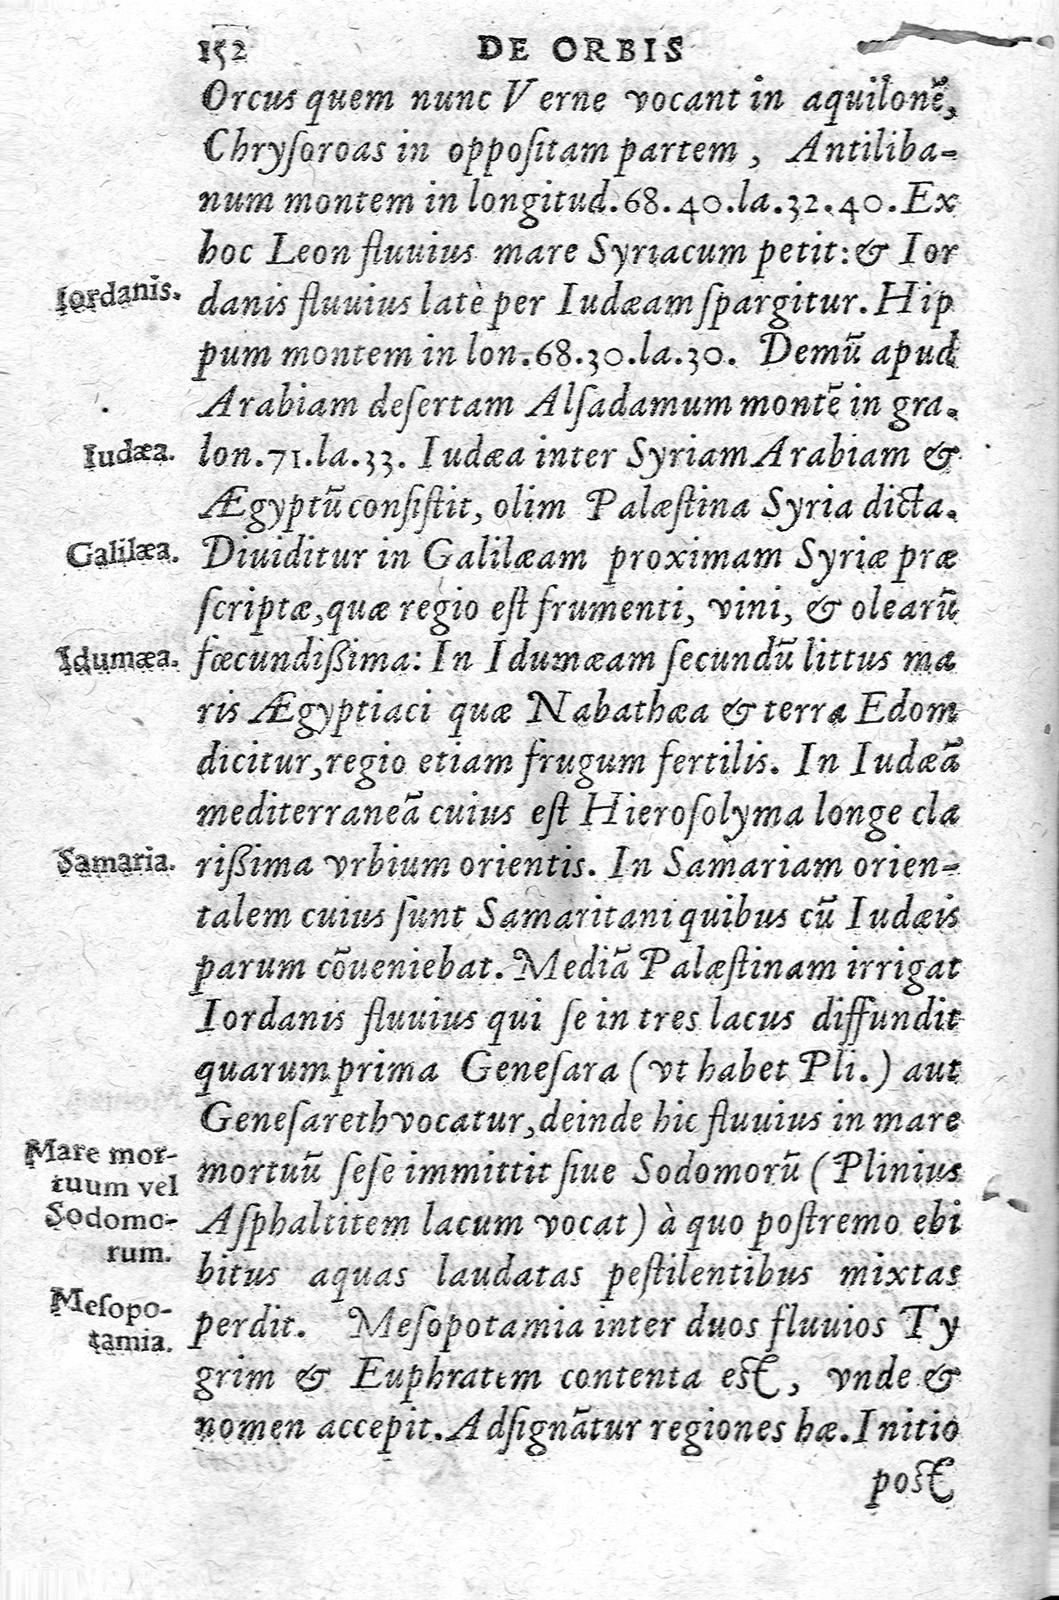 152 DE ORBIS
Orcus quem nunc Verne vocant in aquilonẽ,
Chryſoroas in oppoſitam partem, Antiliba-
num montem in longitud.68.40.la.32.40.Ex
hoc Leon fluuius mare Syriacum petit:& Ior
Iordanis.
danis fluuius latè per Iudæam ſpargitur. Hip
pum montem in lon.68.30.la.30. Demũ apud
Arabiam deſertam Alſadamum montẽ in gra.
Iudæa.
lon.71.la.33. Iudæa inter Syriam Arabiam &
Ægyptũ conſiſtit, olim Palæſtina Syria dicta.
Galilæa.
Diuiditur in Galilæam proximam Syriæ præ
ſcriptæ,quæ regio eſt frumenti, vini, & olearũ
Idumæa.
fœcundiſſima: In Idumæam ſecundũ littus ma
ris Ægyptiaci quæ Nabathæa & terra Edom
dicitur,regio etiam frugum fertilis. In Iudæã
mediterraneã cuius eſt Hieroſolyma longe cla
Samaria.
riſſima vrbium orientis. In Samariam orien-
talem cuius ſunt Samaritani quibus cũ Iudæis
parum cõueniebat. Mediã Palæſtinam irrigat
Iordanis fluuius qui ſe in tres lacus diffundit
quarum prima Geneſara (vt habet Pli.) aut
Geneſareth vocatur,deinde hic fluuius in mare
Mare mor-
tuum vel
Sodomo-
rum.
mortuũ ſeſe immittit ſiue Sodomorũ (Plinius
Aſphaltitem lacum vocat) à quo poſtremo ebi
bitus aquas laudatas peſtilentibus mixtas
Meſopo-
tamia.
perdit. Meſopotamia inter duos fluuios Ty
grim & Euphratem contenta eſt, vnde &
nomen accepit. Adſignãtur regiones hæ. Initio
poſt